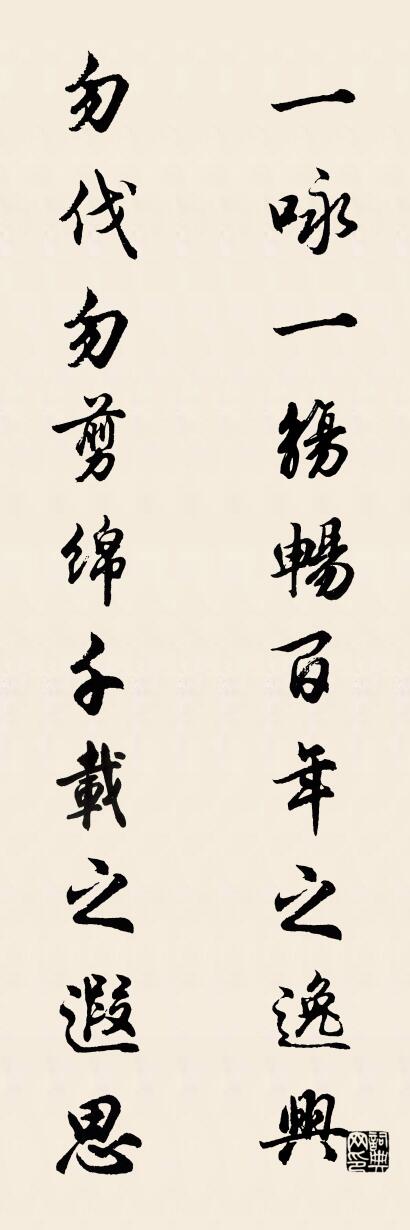 一咏一觞暢百年之逸興
勿伐勿剪绵千載之遐思
詞典网印